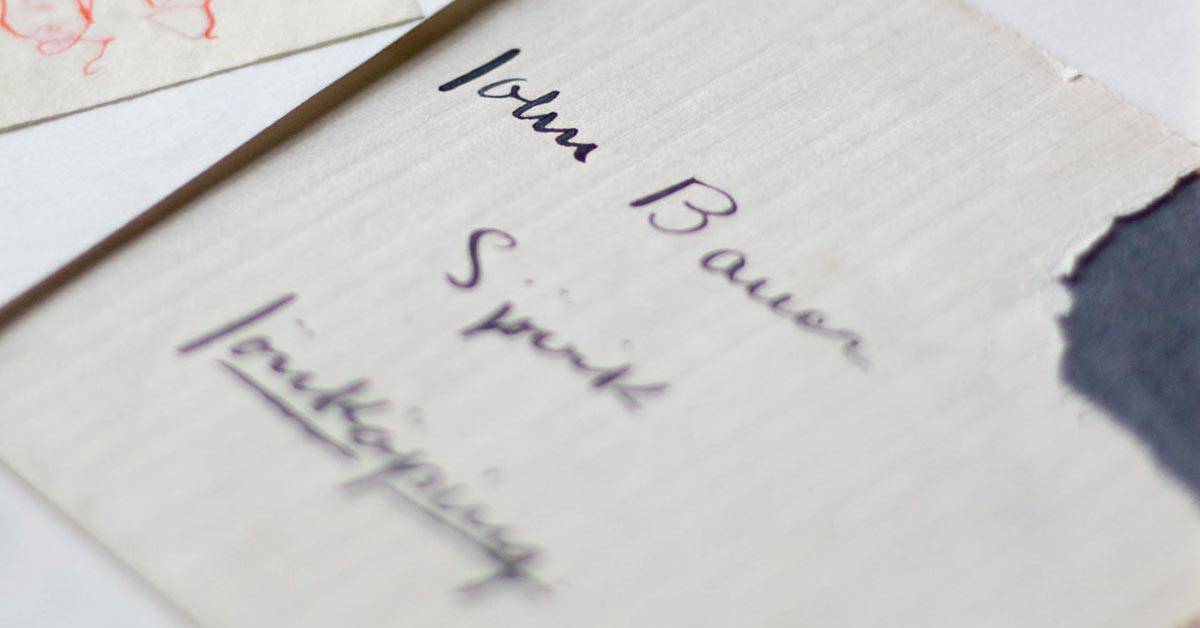 John Bauer
Sjövik
Jönköping